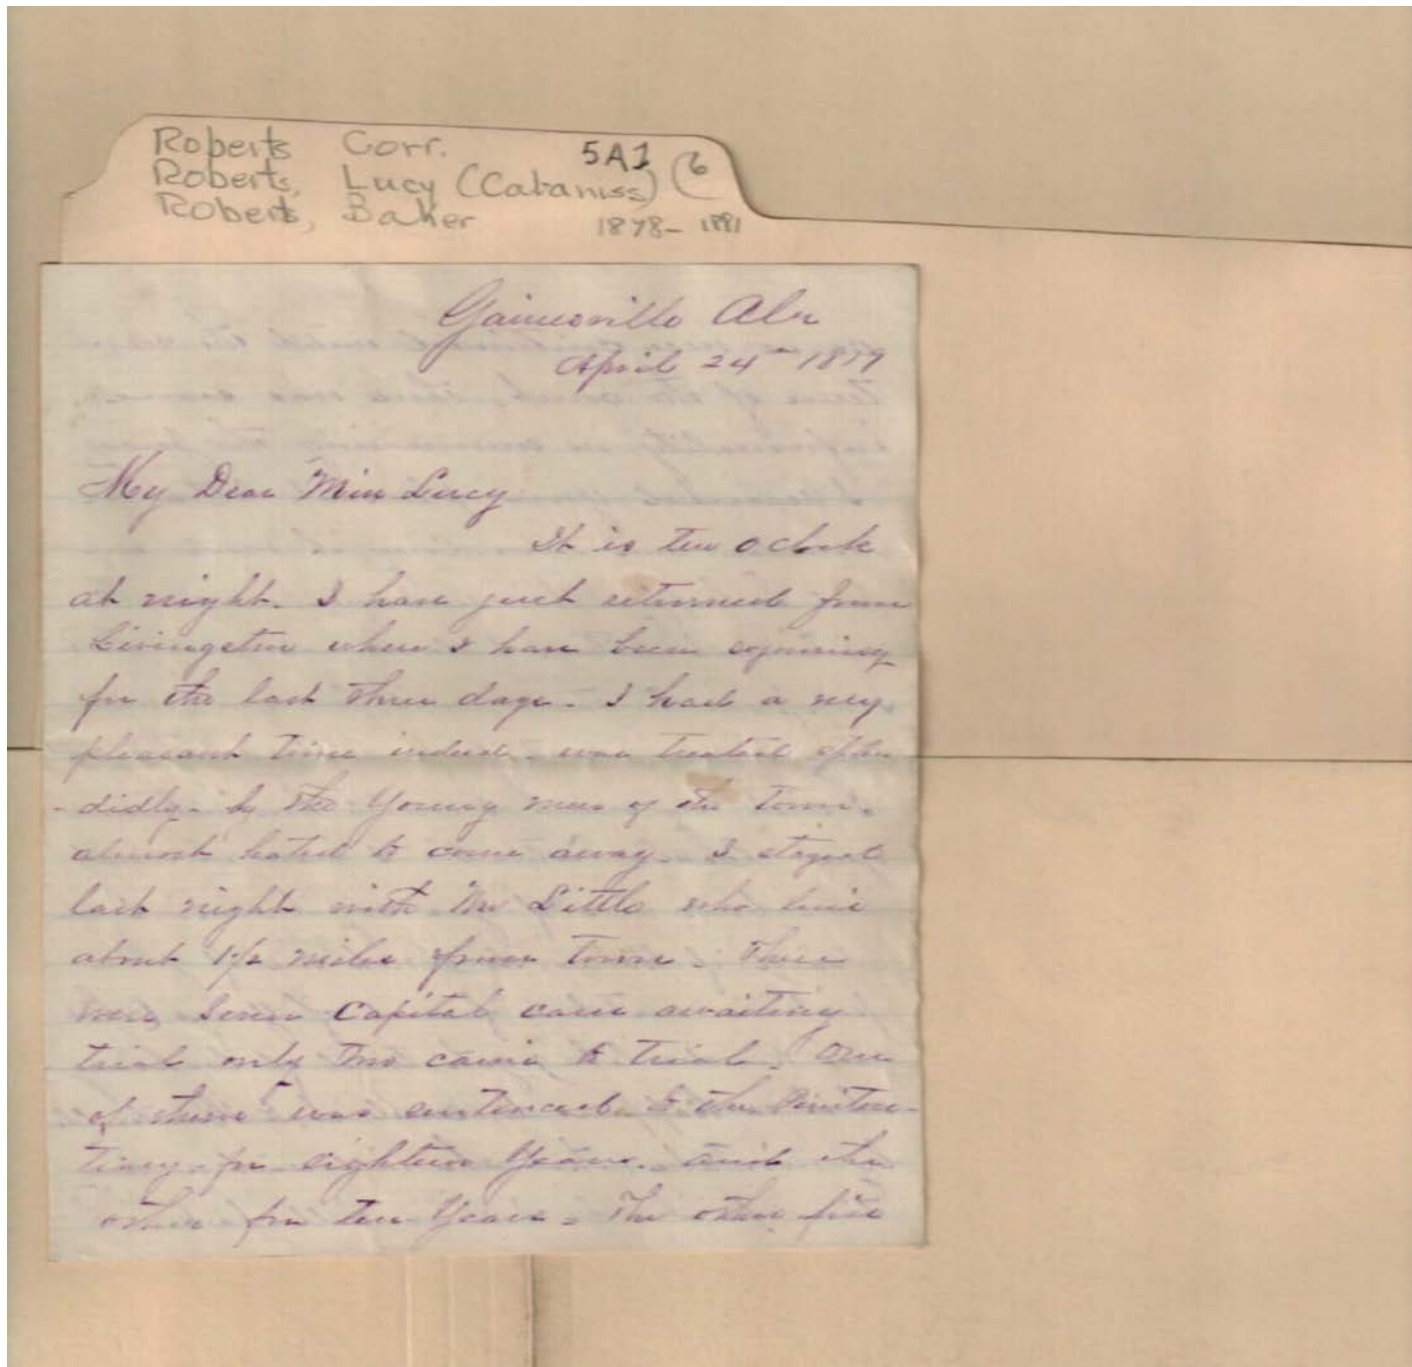 Roberts Corr. 5A1 (6
Roberts, Lucy (Cabaniss)
Roberts, Baker 1878-1881
Gainesville Ala
April 24th 1879
My Dear Miss Lucy
It is ten o clock
at night. I have just returned from
Livingston where I have been sojourning
for the last three days - I had a very
pleasant time indeed - was treated splen
-didly - by the Young men of the town.
almost hated to come away - I stayed
last night with Mr Little who lives
about 1 1/2 miles from town. There
were seven Capital cases awaiting
trial only two came to trial. One
of these was sentenced to the Peniten-
tiary for eighteen Years. and the
other for ten Years - The other five